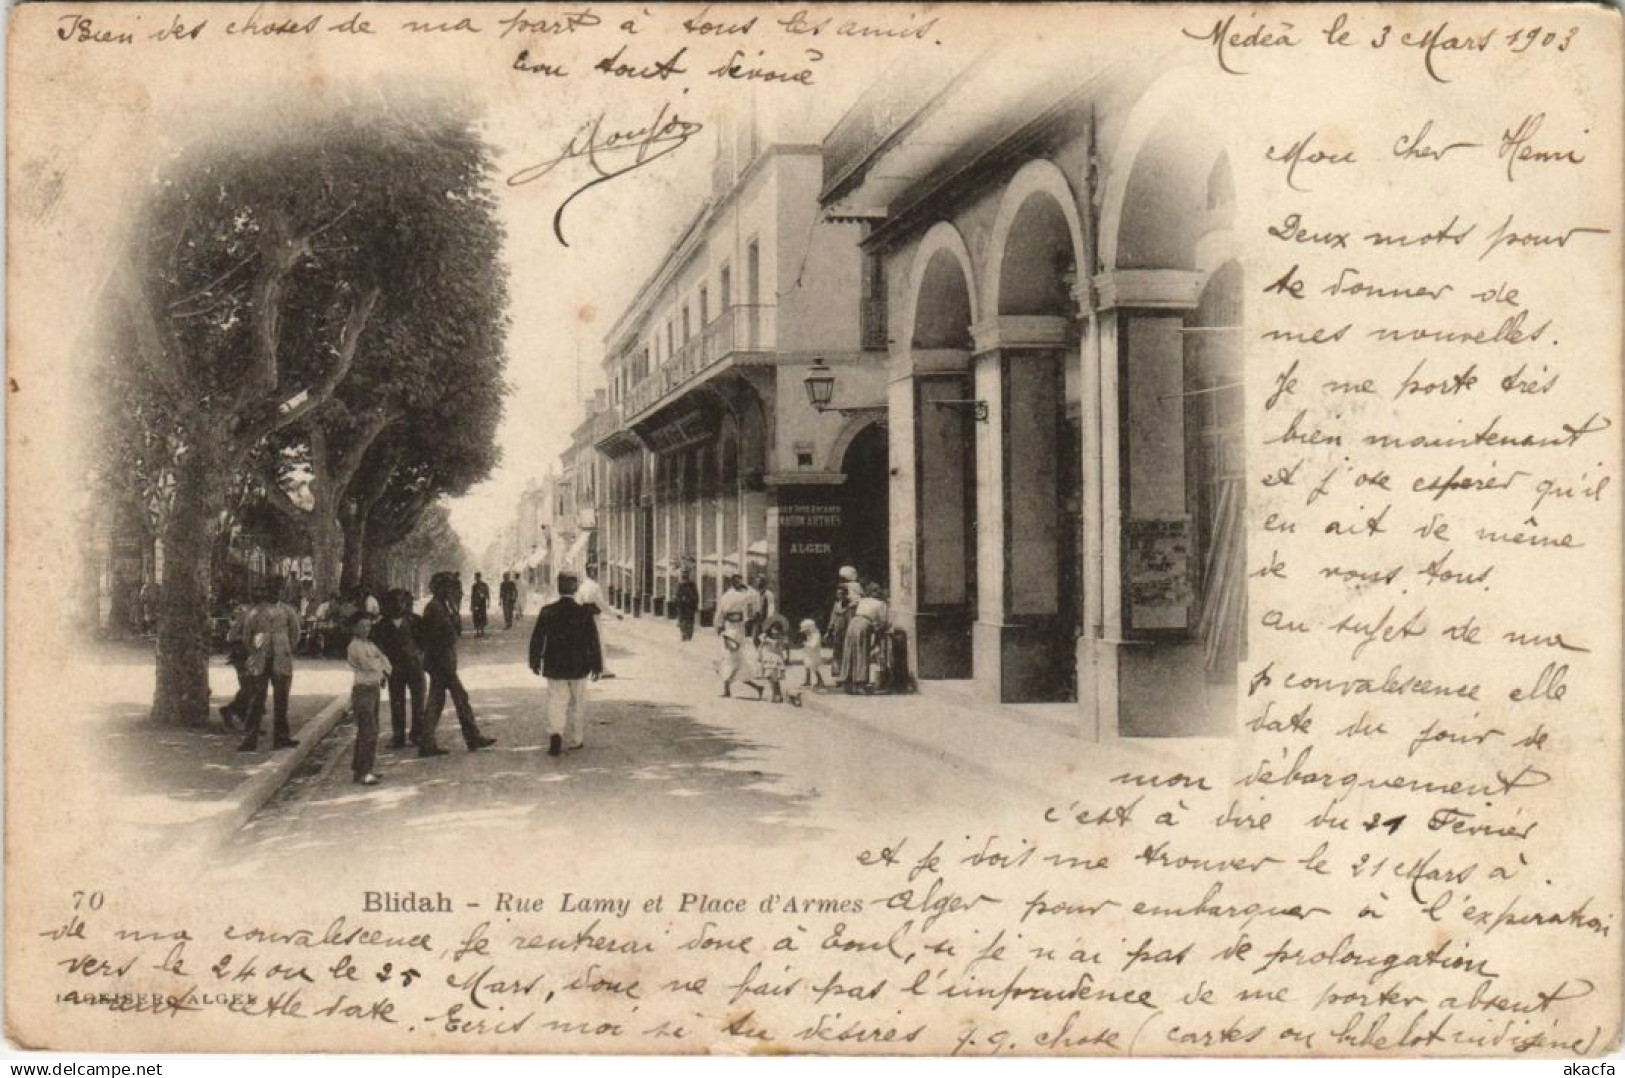 Médéa le 3 Mars 1903
Mon Cher Henri
Deux mots pour
te donner de
mes nouvelles.
Je me porte très
bien maintenant
et j'ose espérer qu'il
en ait de même
de vous tous.
Au sujet de ma
convalescence elle
date du jour de
mon débarquement
c'est à dire du 21 Février
et je dois me trouver le 21 Mars à
Alger pour embarquer à l'expiration
de ma convalescence, je rentrerai donc à Toul, si je n'ai pas de prolongation
vers le 24 ou le 25 Mars, donc ne fais pas l'imprudence de me porter absent
avant cette date. Ecris moi si tu désires q.q. chose (cartes ou bibelot indigène)
Bien des choses de ma part à tous les amis.
Ton tout dévoué
MAISON ARTHES
ALGER
70
Blidah - Rue Lamy et Place d'Armes
J. GEISER, ALGER
delcampe.net
akacfa